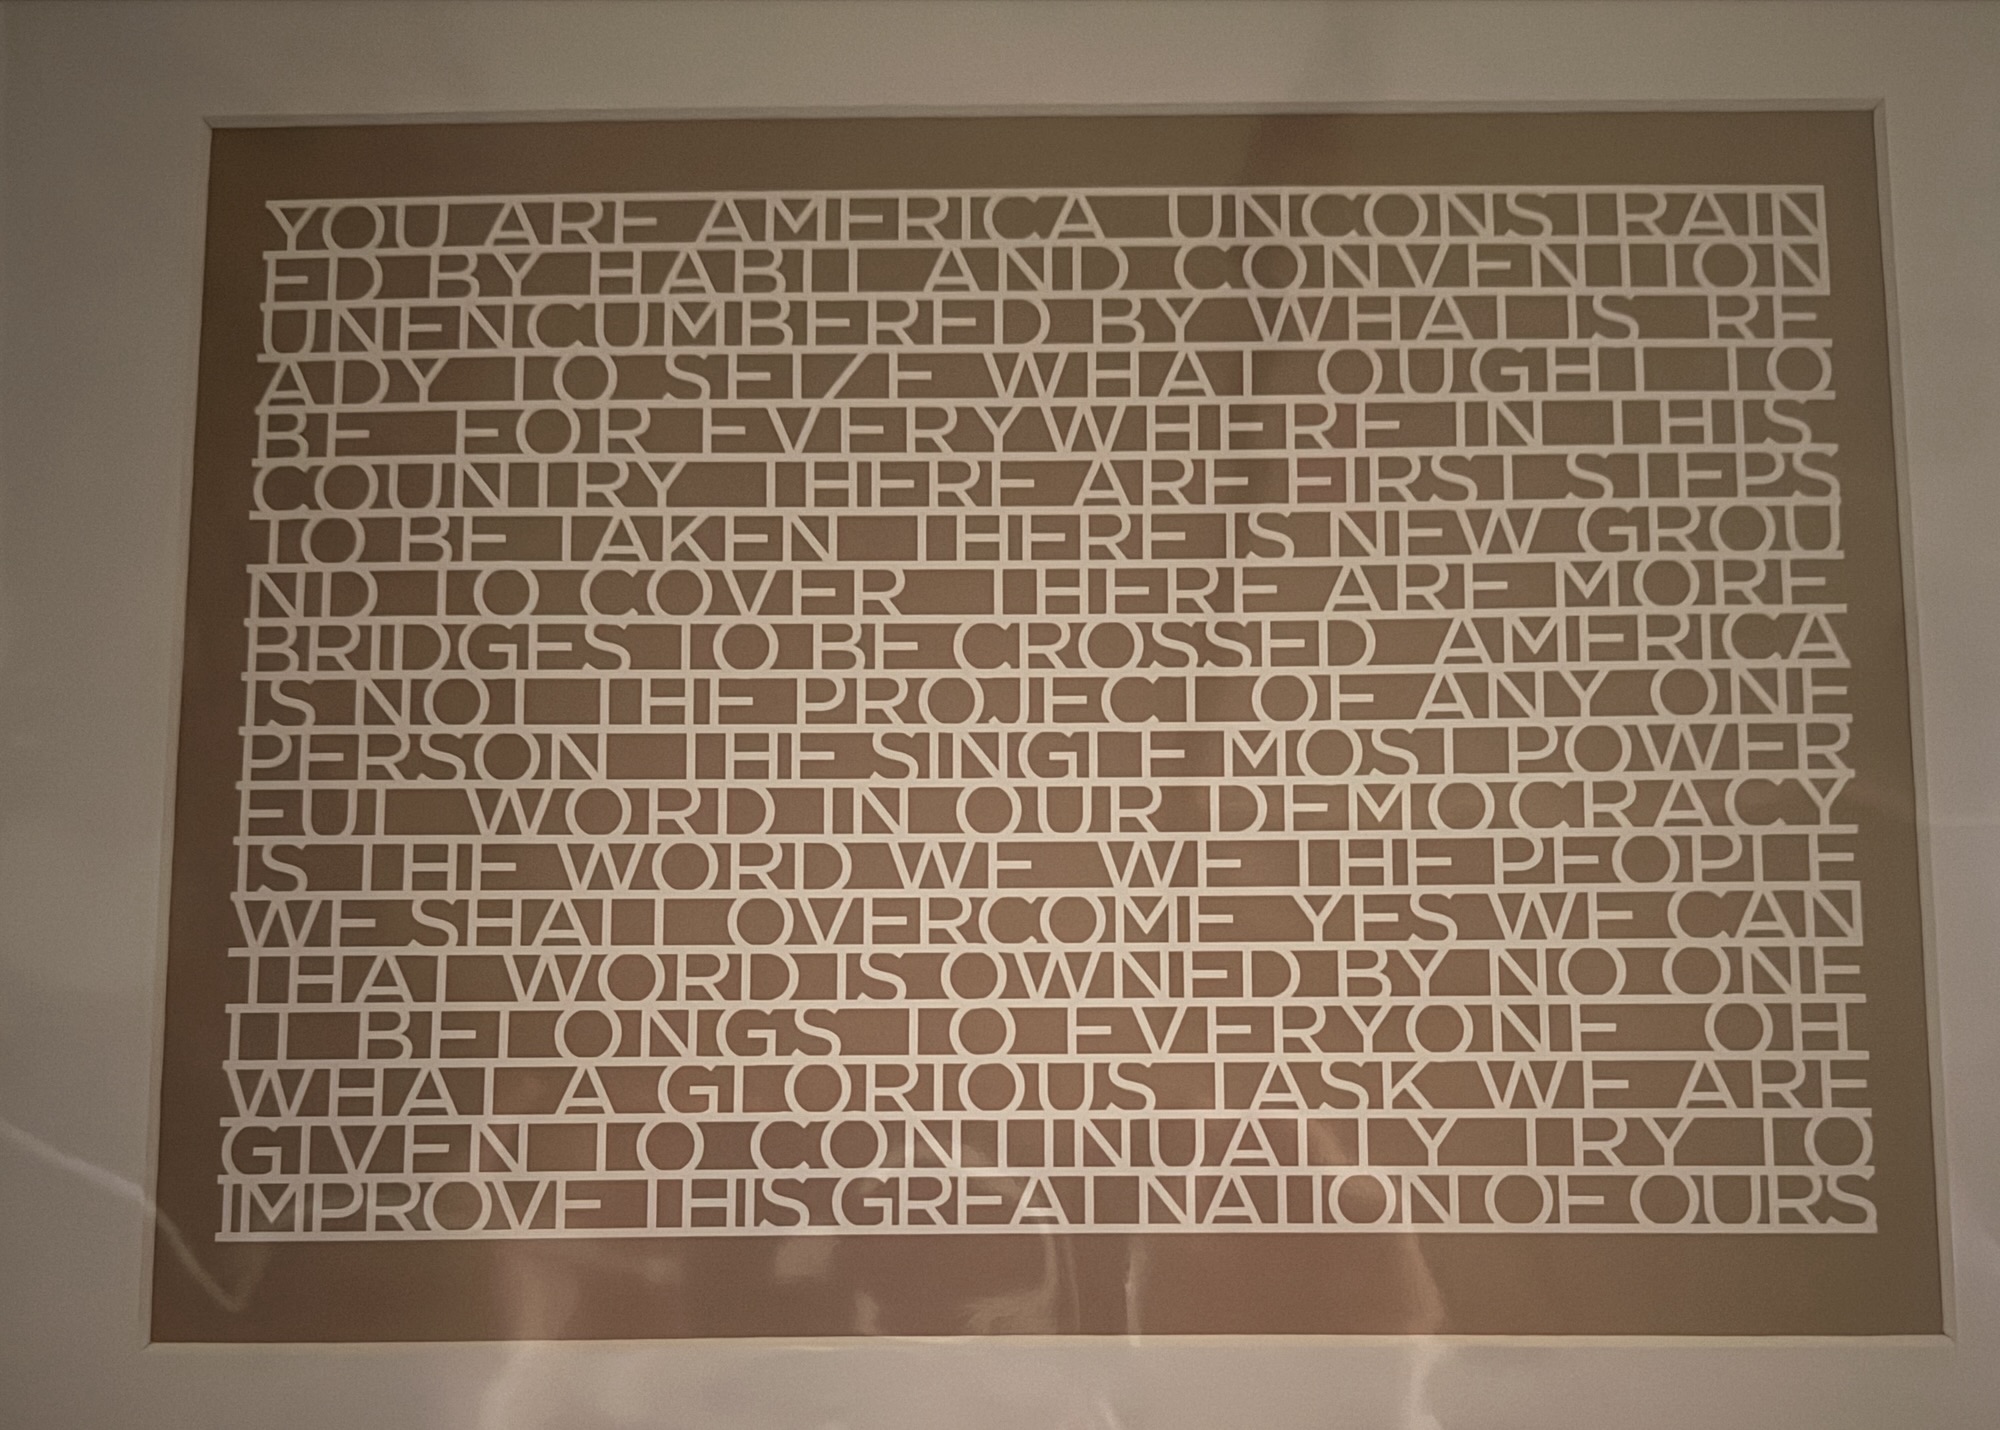 YOU ARE AMERICA UNCONSTRAIN
ED BY HABIT AND CONVENTION
UNENCUMBERED BY WHAT IS RE
ADY TO SEIZE WHAT OUGHT TO
BE FOR EVERYWHERE IN THIS
COUNTRY THERE ARE FIRST STEPS
TO BE TAKEN THERE IS NEW GROU
ND TO COVER THERE ARE MORE
BRIDGES TO BE CROSSED AMERICA
IS NOT THE PROJECT OF ANY ONE
PERSON THE SINGLE MOST POWER
FUL WORD IN OUR DEMOCRACY
IS THE WORD WE WE THE PEOPLE
WE SHALL OVERCOME YES WE CAN
THAT WORD IS OWNED BY NO ONE
IT BELONGS TO EVERYONE OH
WHAT A GLORIOUS TASK WE ARE
GIVEN TO CONTINUALLY TRY TO
IMPROVE THIS GREAT NATION OF OURS